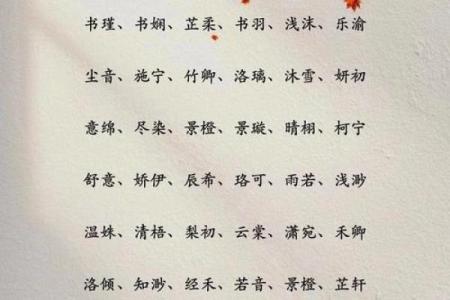 书瑾、书娴、芷柔、书羽、浅沫、乐渝
尘音、施宁、竹卿、洛璃、沐雪、妍初
意绵、尽染、景橙、景璇、晴栩、柯宁
舒意、娇伊、辰希、珞可、雨若、浅渺
温姝、清梧、梨初、云棠、潇宛、禾卿
洛倾、知渺、经禾、若音、景橙、芷轩